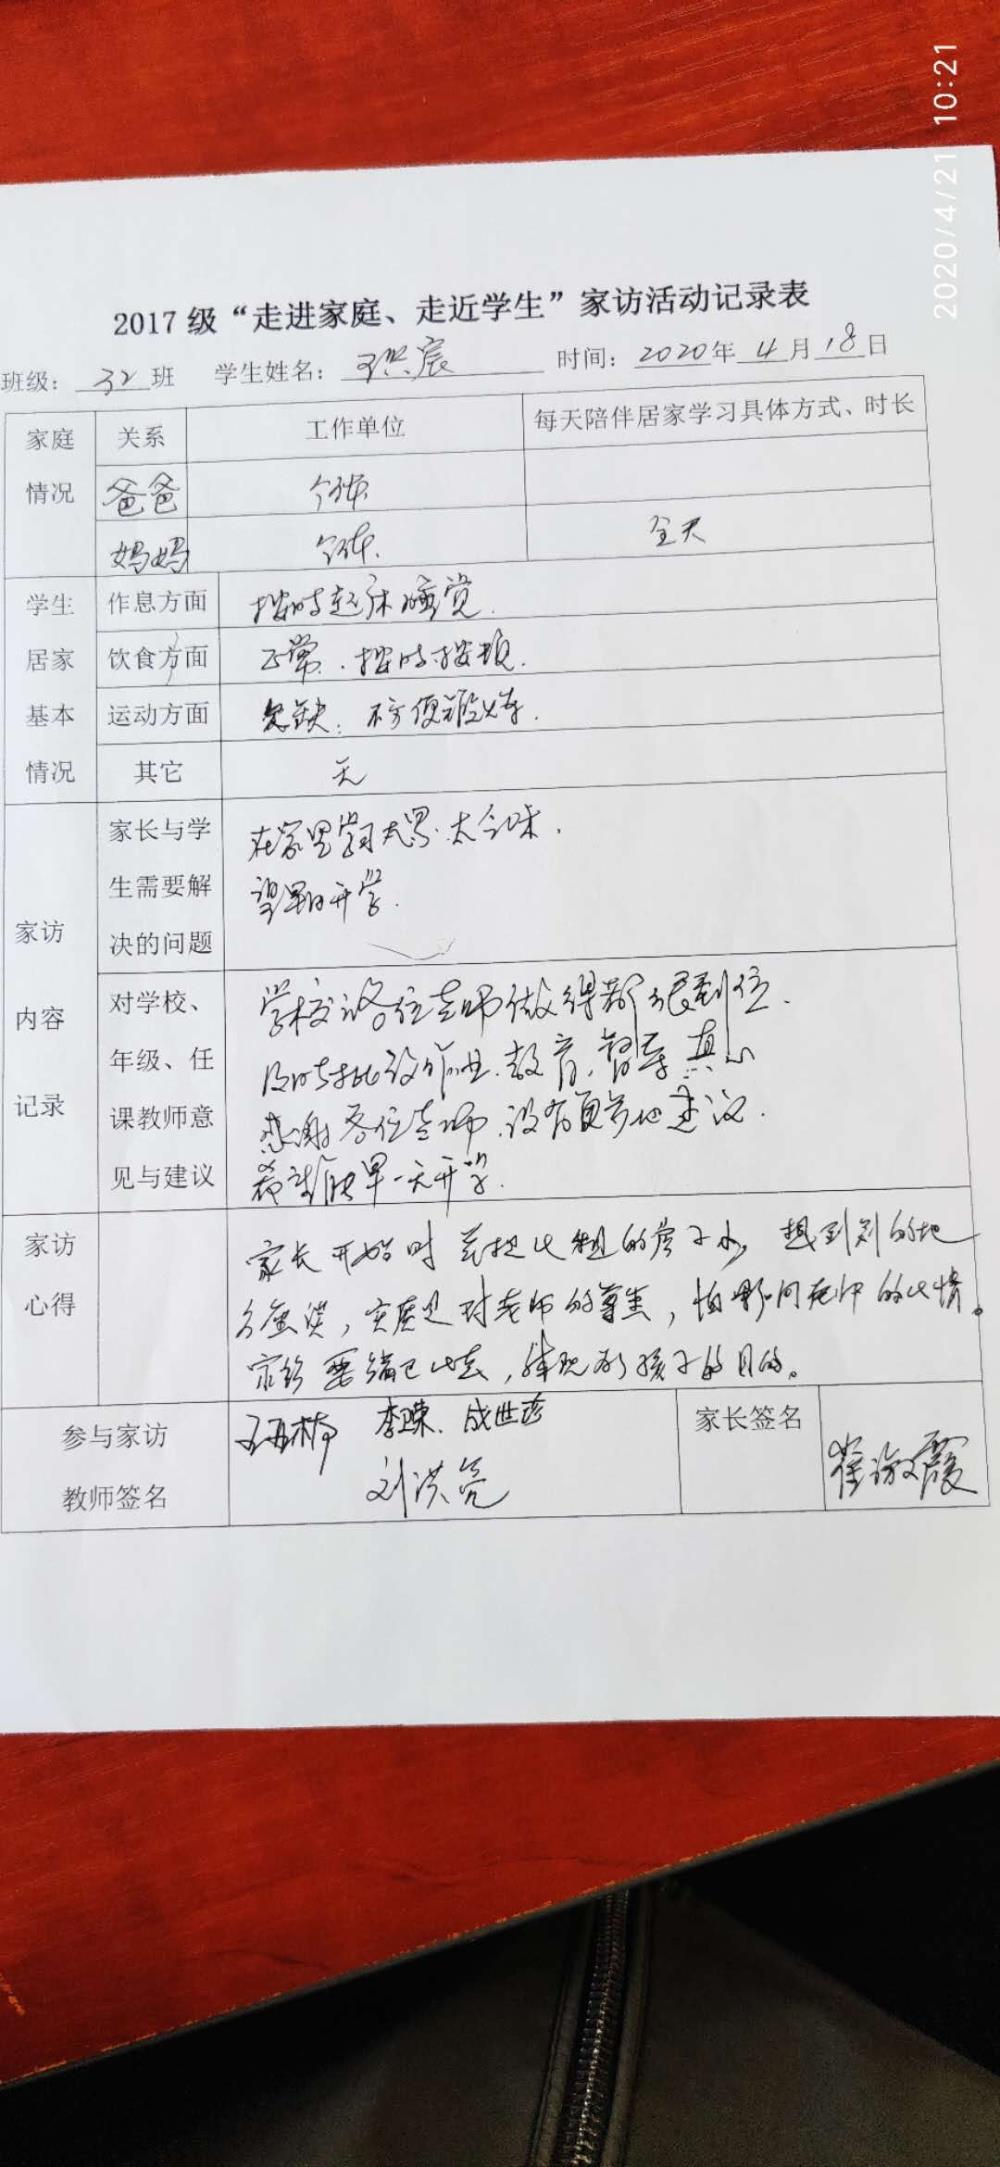 2020/4/21 10:21
2017级“走进家庭、走近学生”家访活动记录表
班级：32班 学生姓名：王洪宸 时间：2020年4月18日
家庭情况 关系 工作单位 每天陪伴居家学习具体方式、时长
爸爸 个体
妈妈 个体 全天
学生居家基本情况 作息方面 按时起床睡觉.
饮食方面 正常.按时按顿.
运动方面 欠缺.不方便
其它 无
家访内容记录
家长与学
生需要解
决的问题
在家里学习太
望早日开学.
对学校、
年级、任
课教师意
见与建议
学校及各位老师做得都很到位.
及时批改作业.教育.督导真心
感谢各位老师.没有更多的建议.
希望能早一天开学.
家访
心得
家长开始时 的房子小 想到别的地
实质是对老师的尊重，怕影响老师的心情。
孩子的目的。
参与家访
教师签名
刘洪亮
家长签名
崔淑霞